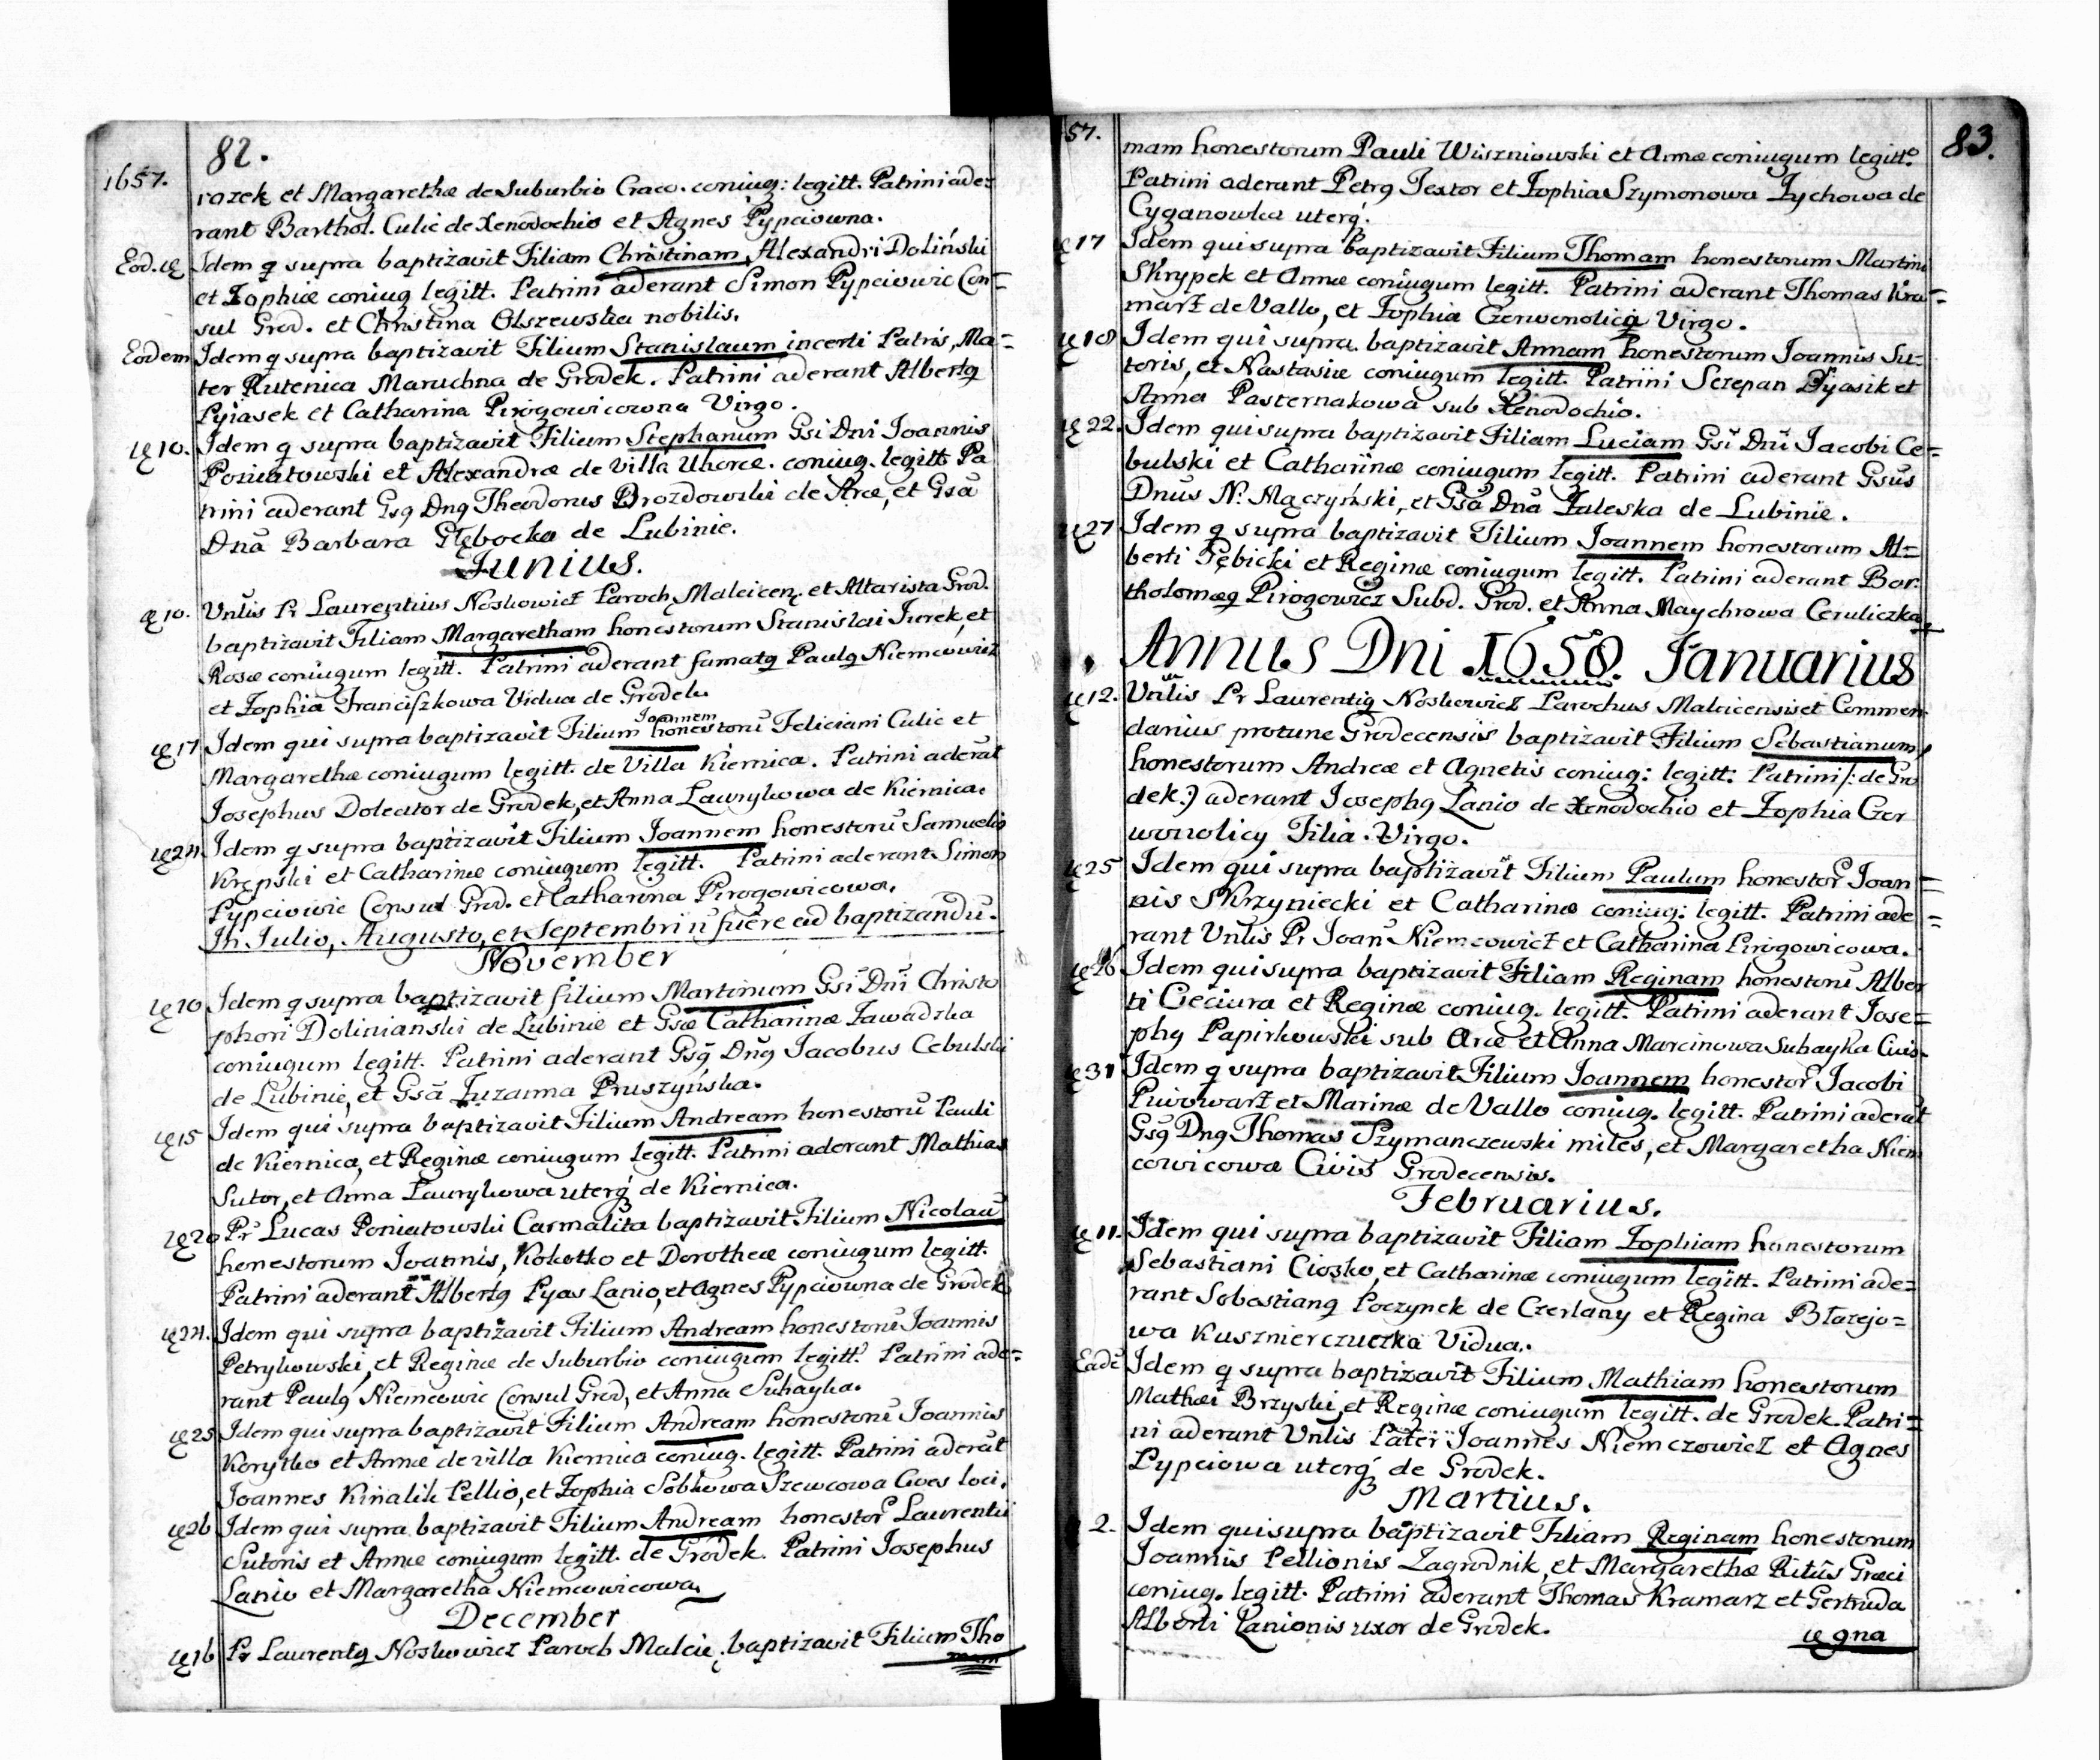 82.
1657.
razek et Margarethæ de Suburbio Craco. coniug: legitt. Patrini ade=
rant Barthol. Culic de Xenodochio et Agnes Pypciowna.
Eod. Idem q supra baptizavit Filiam Christinam Alexandri Doliński
et Zophiæ coniug legitt. Patrini aderant Simon Pypciowic Con=
sul Grod. et Christina Olszewska nobilis.
Eodem Idem q supra baptizavit Filium Stanislaum incerti Patris, Ma=
ter Rutenica Maruchna de Grodek. Patrini aderant Albertq
Pyiasek et Catharina Pirogowicowna Virgo.
10. Idem q supra baptizavit Filium Stephanum Gsi Dni Joannis
Poniatowski et Alexandræ de Villa Uhorce. coniug. legitt Pa
trini aderant Gsq Dnq Theodorus Brozdowski de Arce, et Gsa
Dna Barbara Głębocka de Lubinie.
Junius.
10. Vnlis Pr Laurentius Noskowicz Paroch, Malcicen, et Altarista Grod.
baptizavit Filiam Margaretham honestorum Stanislai Jurek, et
Rosæ coniugum legitt. Patrini aderant famatq Paulq Niemcowicz
et Zophia Franciszkowa Vidua de Grodek.
17 Idem qui supra baptizavit Filium Joannem honestorū Feliciani Culic et
Margarethæ coniugum legitt. de Villa Kiernica. Patrini aderāt
Josephus Doleator de Grodek, et Anna Lawrykowa de Kiernica.
24. Idem q supra baptizavit Filium Joannem honestorū Samuelis
Krępski et Catharinæ coniugum legitt. Patrini aderant Simon
Pypciowic Consul Grod. et Catharina Pirogowicowa.
In Julio, Augusto, et Septembri ñ fuêre ad baptizandū.
November
10 Idem q supra baptizavit filium Martinum Gsi Dni Christo
phori Dolinianski de Lubinie et Gsæ Catharinæ Zawadzka
coniugum legitt. Patrini aderant Gsq Dnq Jacobus Cebulski
de Lubinie, et Gsa Zuzanna Pruszyńska.
15 Idem qui supra baptizavit Filium Andream honestorū Pauli
de Kiernica, et Reginæ coniugum legitt. Patrini aderant Mathias
Sutor, et Anna Laurykowa uterq de Kiernica.
20 Pr Lucas Poniatowski Carmalita baptizavit Filium Nicolaū
honestorum Joannis, Kokotko et Dorotheæ coniugum legitt.
Patrini aderant Albertq Pyas Lanio, et Agnes Pypciowna de Grodek
24. Idem qui supra baptizavit Filium Andream honestorū Joannis
Petrykowski, et Reginæ de Suburbio coniugum legitt. Patrini ade=
rant Paulq Niemcowic Consul Grod, et Anna Suhayka.
25 Idem qui supra baptizavit Filium Andream honestorū Joannis
Korytko et Annæ de villa Kiernica coniug. legitt. Patrini aderāt
Joannes Kinalik Pellio, et Zophia Sobkowa Szewcowa Cives loci.
26 Idem qui supra baptizavit Filium Andream honestor Laurentii
Sutoris et Annæ coniugum legitt. de Grodek. Patrini Josephus
Lanio et Margaretha Niemcowicowa
December
16 Pr Laurentq Noskowicz Paroch Malcic, baptizavit Filium Tho
mam
57.
83.
mam honestorum Pauli Wiszniowski et Annæ coniugum legitt.
Patrini aderant Petrq Textor et Zophia Szymonowa Zychowa de
Cyganowka uterq.
17 Idem qui supra baptizavit Filium Thomam honestorum Martini
Skrypek et Annæ coniugum legitt. Patrini aderant Thomas Kra=
marz de Vallo, et Zophia Czerwonolica Virgo.
18 Idem qui supra baptizavit Annam honestorum Joannis Su=
toris, et Nastasiæ coniugum legitt. Patrini Sczepan Dyasik et
Anna Pasternakowa sub Xenodochio.
22. Idem qui supra baptizavit Filiam Luciam Gsi Dni Jacobi Ce=
bulski et Catharinæ coniugum legitt. Patrini aderant Gsus
Dnus N. Mączyński, et Gsa Dna Zaleska de Lubinie.
27 Idem q supra baptizavit Filium Joannem honestorum Al=
berti Gębicki et Reginæ coniugum legitt. Patrini aderant Bar
tholomæq Pirogowicz Subd. Grod. et Anna Maychrowa Ceruliczka
Annus Dni 1658. Januarius
12. Vnlis Pr Laurentiq Noskowicz Parochus Malcicensis et Commen
darius protunc Grodecensis baptizavit Filium Sebastianum,
honestorum Andreæ et Agnetis coniug: legitt: Patrini /: de Gro
dek:) aderant Josephq Lanio de Xenodochio et Zophia Czer
wonolicy Filia Virgo.
25 Idem qui supra baptizavit Filium Paulum honestor Joan=
nis Skrzyniecki et Catharinæ coniug: legitt. Patrini ade=
rant Vnlis Pr Joan Niemcowicz et Catharina Pirogowicowa.
26 Idem qui supra baptizavit Filiam Reginam honestorū Alber
ti Cieciura et Reginæ coniug. legitt. Patrini aderant Jose=
phq Papirkowski sub Arce et Anna Marcinowa Suhayka Civis.
31 Idem q supra baptizavit Filium Joannem honestor Jacobi
Piwowarz et Marinæ de Vallo coniug. legitt. Patrini aderāt
Gsq Dnq Thomas Szymanczewski miles, et Margaretha Niem
cowicowa Civis Grodecensis.
Februarius.
11. Idem qui supra baptizavit Filiam Zophiam honestorum
Sebastiani Ciozko, et Catharinæ coniugum legitt. Patrini ade=
rant Sebastianq Poczynek de Czerlany et Regina Błazejo=
wa Kusznierczuczka Vidua.
Eadē Idem q supra baptizavit Filium Mathiam honestorum
Mathæi Brzyski, et Reginæ coniugum legitt. de Grodek. Patri=
ni aderant Vnlis Pater Joannes Niemczowicz et Agnes
Pypciowa uterq de Grodek.
Martius.
2. Idem qui supra baptizavit Filiam Reginam honestorum
Joannis Pellionis Zagrodnik, et Margarethæ Ritûs Græci
coniug. legitt. Patrini aderant Thomas Kramarz et Gertruda
Alberti Lanionis uxor de Grodek.
9na